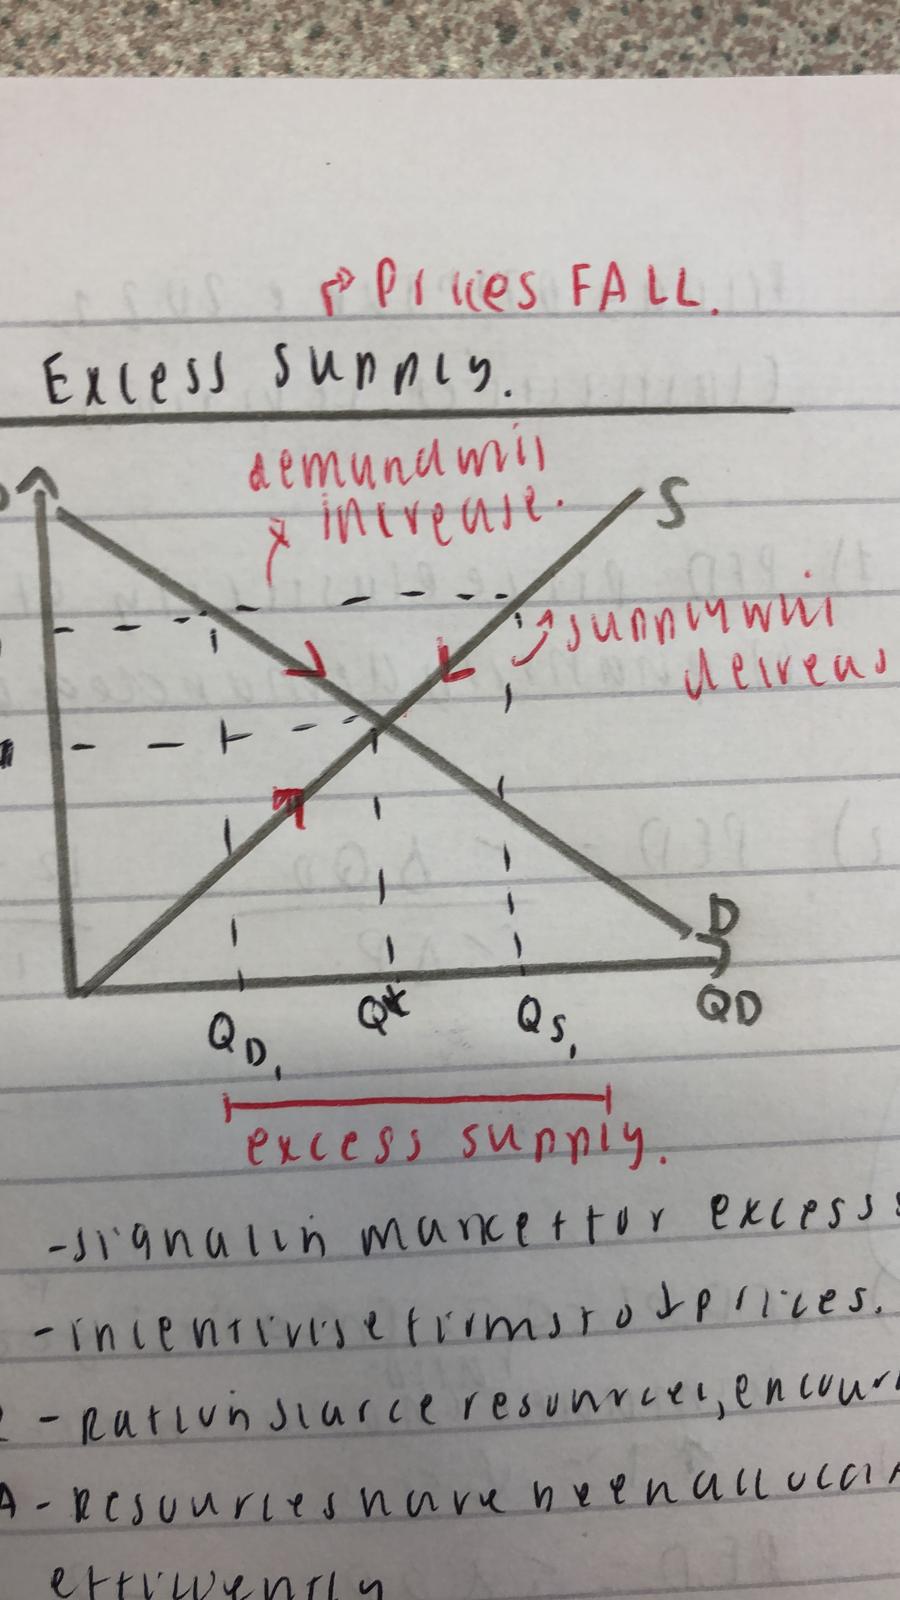 Prices FALL.
Excess supply.
demand will
increase.
S
supply will
decreas
D
QD
QD1
Q*
QS1
excess supply.
- signal in market for excess s
- incentivise firms to ↓ prices.
- Ration scarce resources, encour
A - Resources have been alloca
efficiently